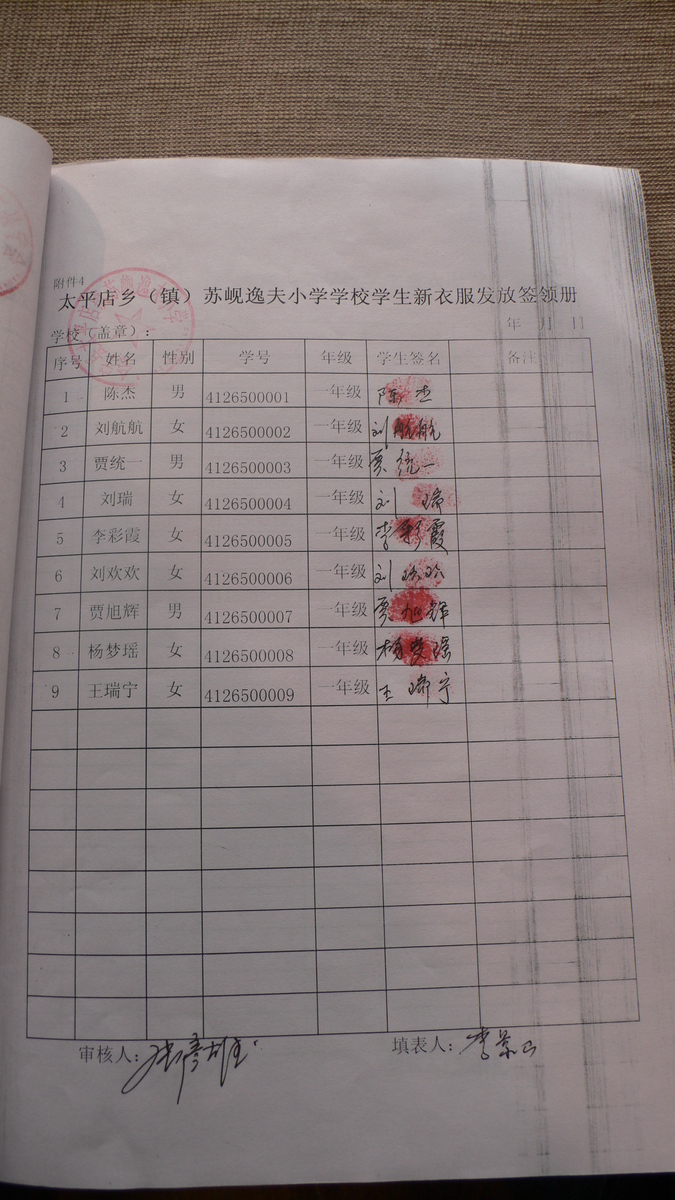 附件4
太平店乡（镇）苏岘逸夫小学学校学生新衣服发放签领册
学校（盖章）： 年 月 日
序号 姓名 性别 学号 年级 学生签名 备注
1 陈杰 男 4126500001 一年级 陈杰
2 刘航航 女 4126500002 一年级 刘航航
3 贾统一 男 4126500003 一年级 贾统一
4 刘瑞 女 4126500004 一年级 刘瑞
5 李彩霞 女 4126500005 一年级 李彩霞
6 刘欢欢 女 4126500006 一年级 刘欢欢
7 贾旭辉 男 4126500007 一年级 贾旭辉
8 杨梦瑶 女 4126500008 一年级 杨梦瑶
9 王瑞宁 女 4126500009 一年级 王瑞宁
审核人： 填表人：